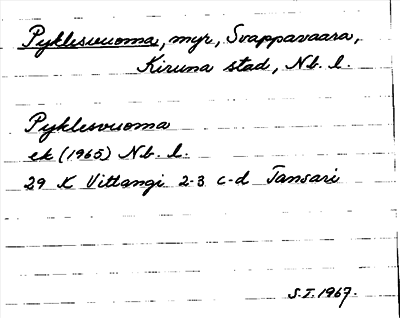 Pyklesvuoma, myr, Svappavaara,
Kiruna stad, Nb. l.
Pyklesvuoma
ek (1965) Nb. l.
29 K Vittangi 2-3 c-d Tansari
S.I. 1967.